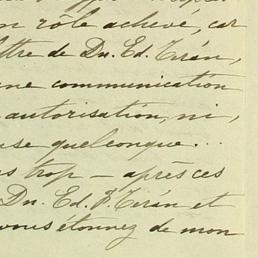 un rôle achevé, car
ttre de Dn. Ed. Tirán,
ne communication
autorisation, ni,
use quelconque...
us trop — après ces
Dn. Ed. F. Tirán et
vous étonnez de mon